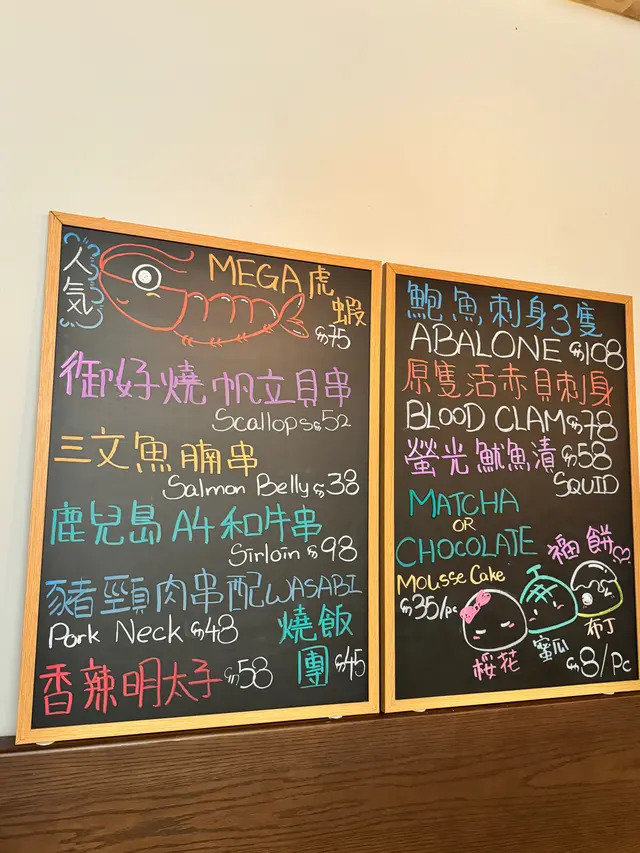 人気
MEGA虎
蝦
$75
御好燒帆立貝串
Scallops $52
三文魚腩串
Salmon Belly $38
鹿兒島A4和牛串
Sirloin $98
豬頸肉串配WASABI
Pork Neck $48
燒飯
團 $45
香辣明太子 $58
鮑魚刺身3隻
ABALONE $108
原隻活赤貝刺身
BLOOD CLAM $78
螢光魷魚漬 $58
SQUID
MATCHA
OR
CHOCOLATE
Mousse Cake
$35/pc
福餅
桜花
蜜瓜
布丁
$8/Pc